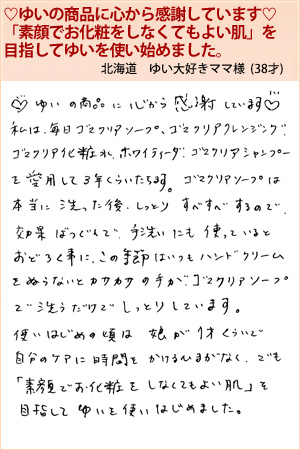 ♡ゆいの商品に心から感謝しています♡
「素顔でお化粧をしなくてもよい肌」を
目指してゆいを使い始めました。
北海道　ゆい大好きママ様 (38才)
♡ ゆいの商品に心から感謝しています♡
私は、毎日ゴマクリアソープ、ゴマクリアクレンジング、
ゴマクリア化粧水、ホワイティーダ、ゴマクリアシャンプー
を愛用して3年くらいたちます。ゴマクリアソープは
本当に洗った後、しっとりすべすべするので、
効果ばつぐんで、手洗いにも使っていると
おどろく事に、この季節はいつもハンドクリーム
をぬらないとカサカサの手が、ゴマクリアソープ
で洗うだけでしっとりしています。
使いはじめの頃は娘が1才くらいで
自分のケアに時間をかけるひまがなく、でも
「素顔でお化粧をしなくてもよい肌」を
目指してゆいを使いはじめました。